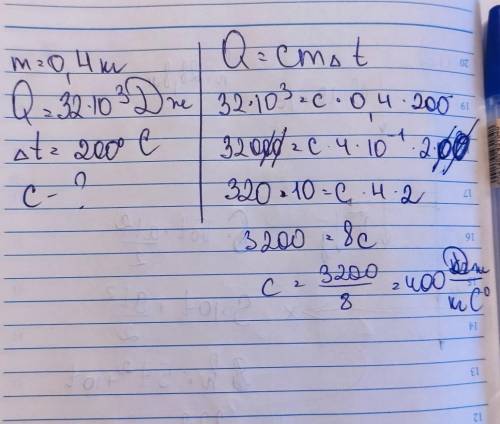 m=0,4 кг
Q=32·10³ Дж
Δt=200° C
c-?
Q=cmΔt
32·10³=c·0,4·200
32000=c·4·10⁻¹·200
320·10=c·4·2
3200=8c
c=3200/8=400 Дж/кг C°
20
19
17
16
15
14
13
12